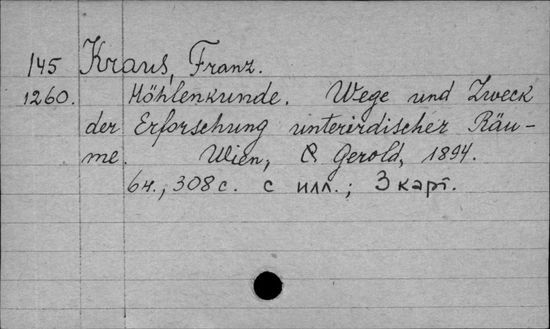 145 Kraus, Franz.
1260. Höhlenkunde. Wege und Zweck
der Erforschung unterirdischer Räu-
me. Wien, Gerold, 1894.
6н., 308 с. с илл.; 3 карт.